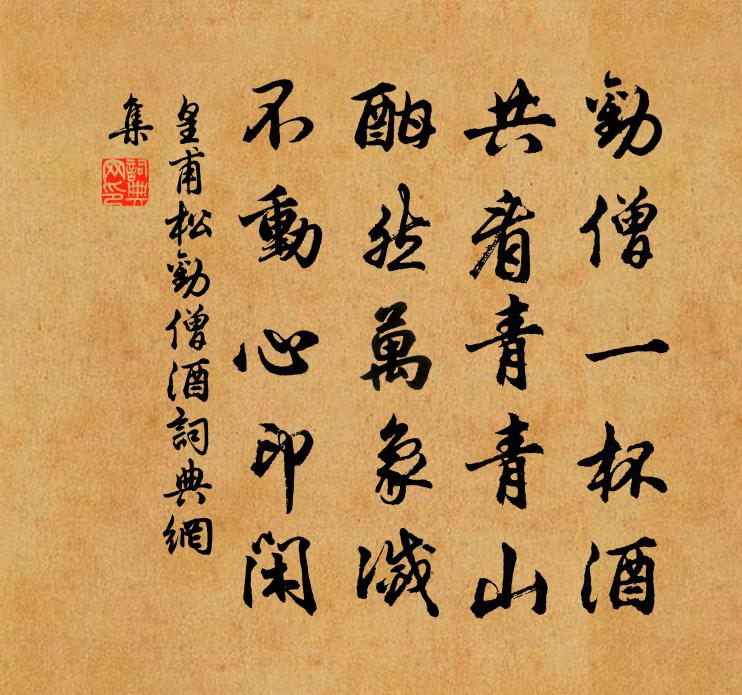 勸僧一杯酒
共看青青山
酣然萬象滅
不動心印閑
皇甫松勸僧酒詞典網
集
詞典
网印